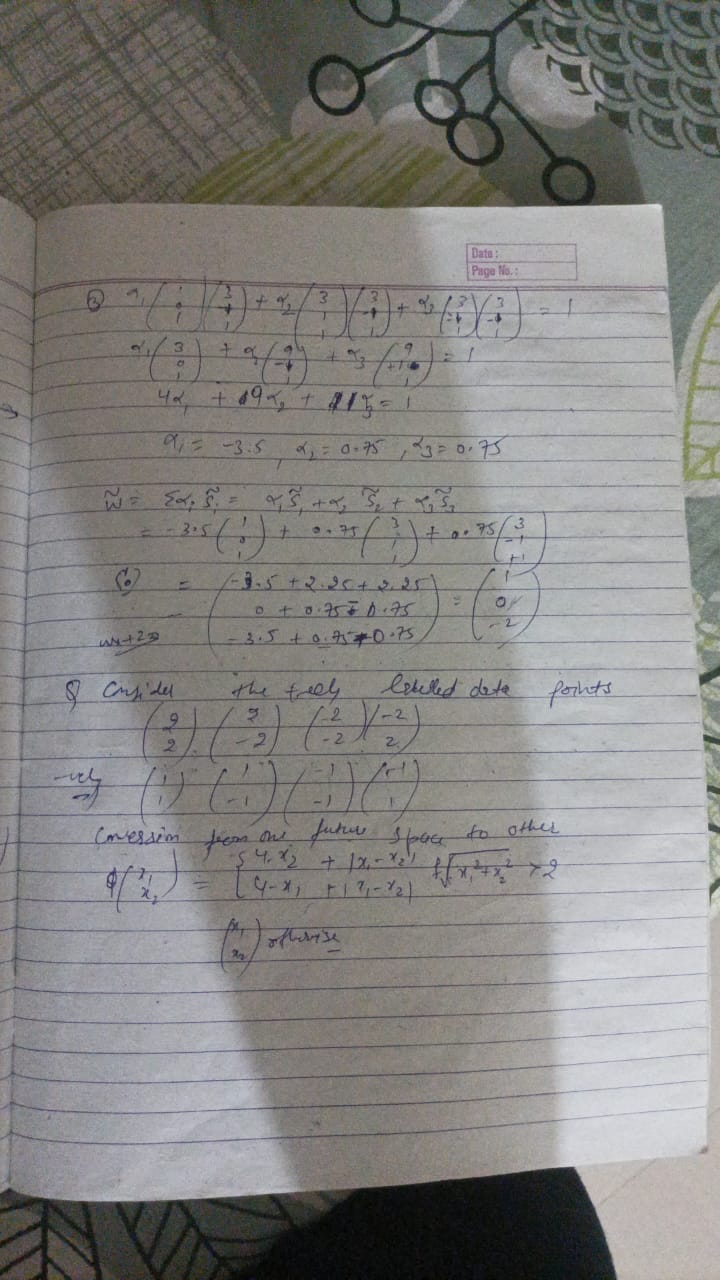 Date :
Page No. :
③ α₁ (1 0 1) (3 -1 1) + α₂ (3 1 1) (3 -1 1) + α₃ (3 -1 1) (3 -1 1) = 1
α₁ (3 0 1) + α₂ (9 -1 1) + α₃ (9 +1 1) = 1
4α₁ + 9α₂ + 11α₃ = 1
α₁ = -3.5 , α₂ = 0.75 , α₃ = 0.75
w̃ = Σαᵢ s̃ᵢ = α₁s̃₁ + α₂ s̃₂ + α₃s̃₃
= -3.5 (1 0 1) + 0.75 (3 1 1) + 0.75 (3 -1 +1)
= (-3.5 + 2.25 + 2.25 0 + 0.75 - 0.75 -3.5 + 0.75 + 0.75) = (1 0 -2)
Q Consider the labelled data points
(2 2) (2 -2) (-2 -2) (-2 2)
-vely → (1 1) (1 -1) (-1 -1) (-1 1)
Conversion from one future space to other
ϕ(x₁ x₂) = { 4-x₂ + |x₁-x₂| 4-x₁ + |x₁-x₂| if √x₁²+x₂² > 2
(x₁ x₂) otherwise